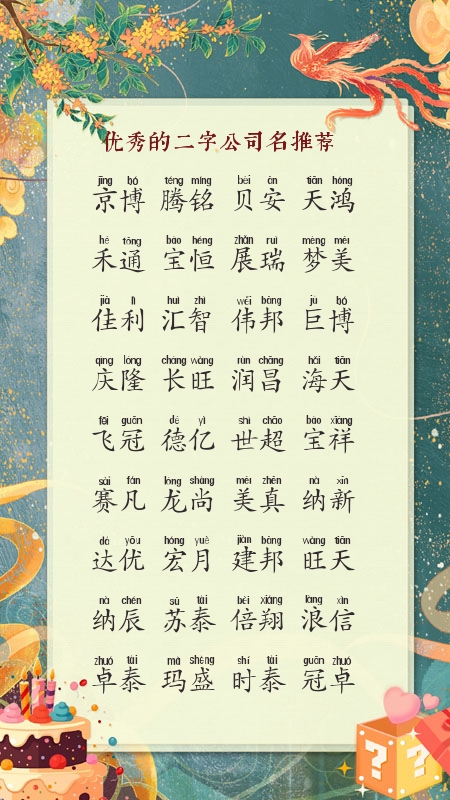 优秀的二字公司名推荐
jīng bó téng míng bèi ān tiān hóng
京博 腾铭 贝安 天鸿
hé tōng bǎo héng zhǎn ruì mèng měi
禾通 宝恒 展瑞 梦美
jiā lì huì zhì wěi bāng jù bó
佳利 汇智 伟邦 巨博
qìng lóng cháng wàng rùn chāng hǎi tiān
庆隆 长旺 润昌 海天
fēi guān dé yì shì chāo bǎo xiáng
飞冠 德亿 世超 宝祥
sài fán lóng shàng měi zhēn nà xīn
赛凡 龙尚 美真 纳新
dá yōu hóng yuè jiàn bāng wàng tiān
达优 宏月 建邦 旺天
nà chén sū tài bèi xiáng làng xìn
纳辰 苏泰 倍翔 浪信
zhuó tài mǎ shèng shí tài guān zhuó
卓泰 玛盛 时泰 冠卓
? ?